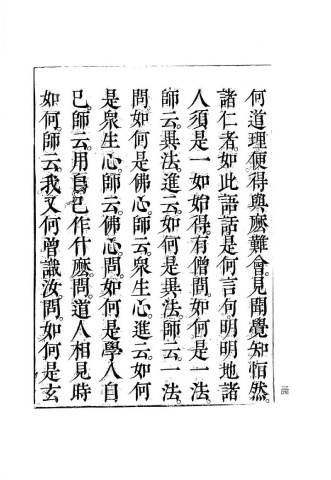 何道理便得與麽難會。見聞覺知恒然。
諸仁者。如此語話是何言句。明明地諸
人須是一如始得。有僧問。如何是一法。
師云。異法。進云。如何是異法。師云。一法。
問。如何是佛心。師云。眾生心。進云。如何
是眾生心。師云。佛心。問。如何是學人自
己。師云。用自己作什麽。問。道人相見時
如何。師云。我又何曾識汝。問。如何是玄